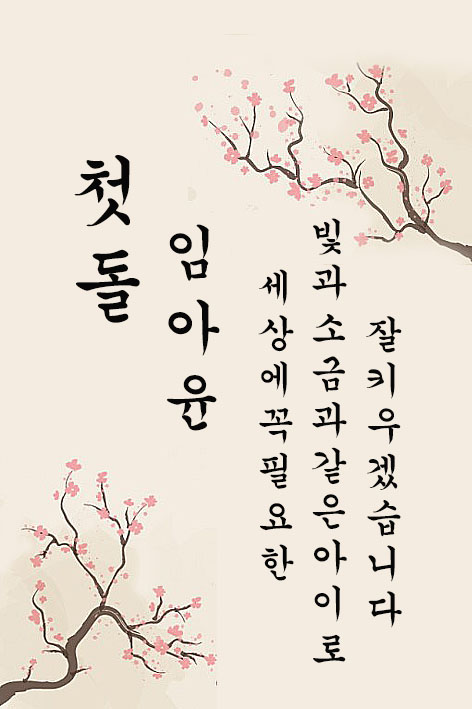 첫돌
임아윤
세상에꼭필요한
빛과소금과같은아이로
잘키우겠습니다